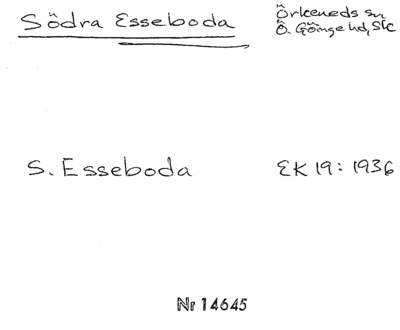 Södra Esseboda
Örkeneds sn
Ö. Göinge hd, Skåne
S. Esseboda
EK 19: 1936
Nr 14645